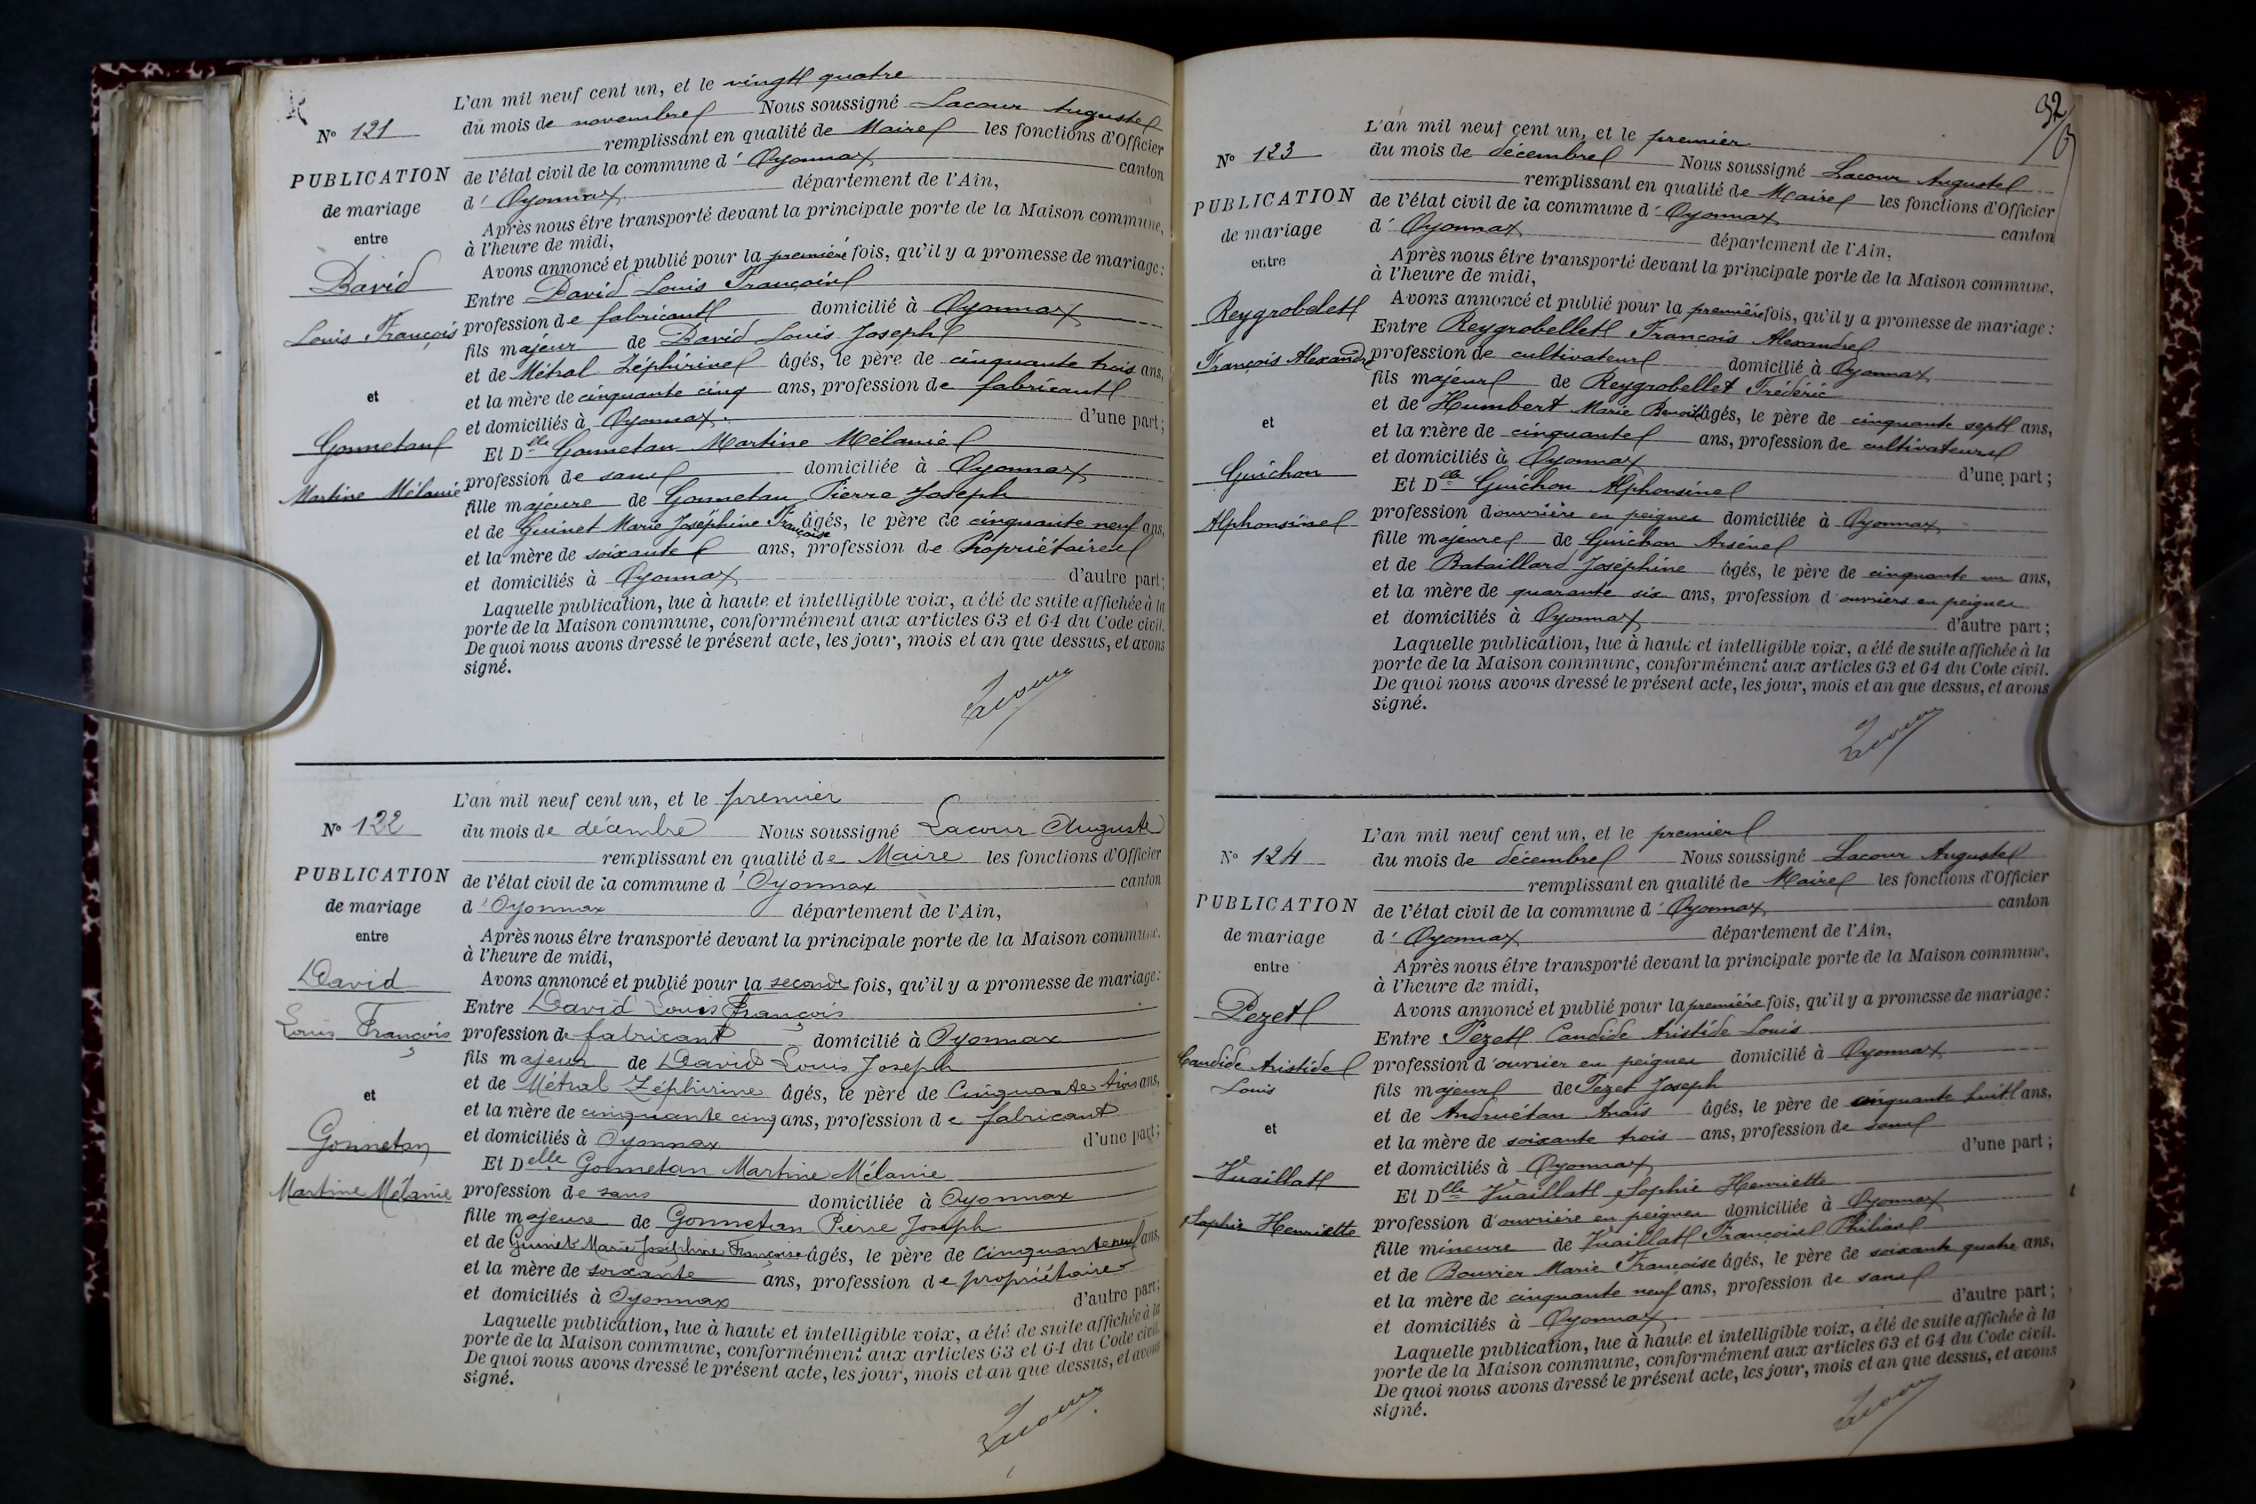 N° 121
PUBLICATION
de mariage
entre
David
Louis François
et
Gonnetan
Martine Mélanie
L'an mil neuf cent un, et le vingt quatre
du mois de novembre Nous soussigné Lacour Auguste
remplissant en qualité de Maire les fonctions d'Officier
de l'état civil de la commune d' Oyonnax canton
d' Oyonnax département de l'Ain,
Après nous être transporté devant la principale porte de la Maison commune,
à l'heure de midi,
Avons annoncé et publié pour la première fois, qu'il y a promesse de mariage:
Entre David Louis François
profession de fabricant domicilié à Oyonnax
fils majeur de David Louis Joseph
et de Métral Zéphirine âgés, le père de cinquante trois ans,
et la mère de cinquante cinq ans, profession de fabricant
et domiciliés à Oyonnax d'une part;
Et Dlle Gonnetan Martine Mélanie
profession de sans domiciliée à Oyonnax
fille majeure de Gonnetan Pierre Joseph
et de Guinet Marie Joséphine Françoise âgés, le père de cinquante neuf ans,
et la mère de soixante ans, profession de Propriétaires
et domiciliés à Oyonnax d'autre part;
Laquelle publication, lue à haute et intelligible voix, a été de suite affichée à la
porte de la Maison commune, conformément aux articles 63 et 64 du Code civil.
De quoi nous avons dressé le présent acte, les jour, mois et an que dessus, et avons
signé.
Lacour
N° 122
PUBLICATION
de mariage
entre
David
Louis François
et
Gonnetan
Martine Mélanie
L'an mil neuf cent un, et le premier
du mois de décembre Nous soussigné Lacour Auguste
remplissant en qualité de Maire les fonctions d'Officier
de l'état civil de la commune d' Oyonnax canton
d' Oyonnax département de l'Ain,
Après nous être transporté devant la principale porte de la Maison commune.
à l'heure de midi,
Avons annoncé et publié pour la seconde fois, qu'il y a promesse de mariage:
Entre David Louis François
profession de fabricant domicilié à Oyonnax
fils majeur de David Louis Joseph
et de Métral Zéphirine âgés, le père de Cinquante trois ans,
et la mère de cinquante cinq ans, profession de fabricant
et domiciliés à Oyonnax d'une part;
Et Delle Gonnetan Martine Mélanie
profession de sans domiciliée à Oyonnax
fille majeure de Gonnetan Pierre Joseph
et de Guinet Marie Joséphine Françoise âgés, le père de Cinquante neuf ans,
et la mère de soixante ans, profession de propriétaires
et domiciliés à Oyonnax d'autre part;
Laquelle publication, lue à haute et intelligible voix, a été de suite affichée à la
porte de la Maison commune, conformément aux articles 63 et 64 du Code civil.
De quoi nous avons dressé le présent acte, les jour, mois et an que dessus, et avons
signé.
Lacour
32
N° 123
PUBLICATION
de mariage
entre
Reygrobelet
François Alexandre
et
Guichon
Alphonsine
L'an mil neuf cent un, et le premier
du mois de décembre Nous soussigné Lacour Auguste
remplissant en qualité de Maire les fonctions d'Officier
de l'état civil de la commune d' Oyonnax canton
d' Oyonnax département de l'Ain,
Après nous être transporté devant la principale porte de la Maison commune,
à l'heure de midi,
Avons annoncé et publié pour la première fois, qu'il y a promesse de mariage:
Entre Reygrobellet François Alexandre
profession de cultivateur domicilié à Oyonnax
fils majeur de Reygrobellet Frédéric
et de Humbert Marie Benoite âgés, le père de cinquante sept ans,
et la mère de cinquante ans, profession de cultivateurs
et domiciliés à Oyonnax d'une part;
Et Dlle Guichon Alphonsine
profession d'ouvrière en peignes domiciliée à Oyonnax
fille majeure de Guichon Arsène
et de Bataillard Joséphine âgés, le père de cinquante un ans,
et la mère de quarante six ans, profession d'ouvriers en peignes
et domiciliés à Oyonnax d'autre part;
Laquelle publication, lue à haute et intelligible voix, a été de suite affichée à la
porte de la Maison commune, conformément aux articles 63 et 64 du Code civil.
De quoi nous avons dressé le présent acte, les jour, mois et an que dessus, et avons
signé.
Lacour
N° 124
PUBLICATION
de mariage
entre
Pezet
Candide Aristide
Louis
et
Vuaillat
Sophie Henriette
L'an mil neuf cent un, et le premier
du mois de décembre Nous soussigné Lacour Auguste
remplissant en qualité de Maire les fonctions d'Officier
de l'état civil de la commune d' Oyonnax canton
d' Oyonnax département de l'Ain,
Après nous être transporté devant la principale porte de la Maison commune,
à l'heure de midi,
Avons annoncé et publié pour la première fois, qu'il y a promesse de mariage:
Entre Pezet Candide Aristide Louis
profession d'ouvrier en peignes domicilié à Oyonnax
fils majeur de Pezet Joseph
et de Andruétan Anaïs âgés, le père de cinquante huit ans,
et la mère de soixante trois ans, profession de sans
et domiciliés à Oyonnax d'une part;
Et Dlle Vuaillat Sophie Henriette
profession d'ouvrière en peignes domiciliée à Oyonnax
fille mineure de Vuaillat François Philian
et de Bouvier Marie Françoise âgés, le père de soixante quatre ans,
et la mère de cinquante neuf ans, profession de sans
et domiciliés à Oyonnax d'autre part;
Laquelle publication, lue à haute et intelligible voix, a été de suite affichée à la
porte de la Maison commune, conformément aux articles 63 et 64 du Code civil.
De quoi nous avons dressé le présent acte, les jour, mois et an que dessus, et avons
signé.
Lacour